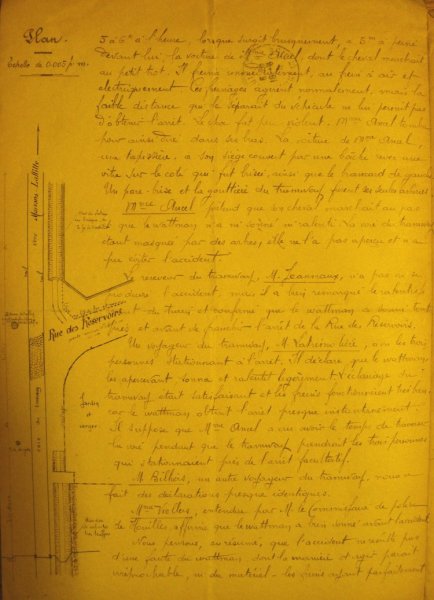 Plan.
Echelle de 0.005 p. m.
5 à 6 K à l'heure, lorsque surgit brusquement, à 5 m à peine
devant lui, la voiture de Mme Amel, dont le cheval marchait
au petit trot. Il freina immédiatement, au frein à air et
électriquement. Les freinages agirent normalement, mais la
faible distance qui le séparait du véhicule ne lui permit pas
d'obtenir l'arrêt. Le choc fut peu violent. Mme Amel tomba
pour ainsi dire dans ses bras. La voiture de Mme Amel,
une tapissière, a son siège couvert par une bâche avec une
vitre sur le côté qui fut brisée, ainsi que le brancard de gauche.
Un pare-brise et la gouttière du tramway furent seuls
Mme Amel prétend que son cheval marchait au pas
que le wattman n'a ni sonné ni ralenti. La vue du tramway
étant masquée par des arbres, elle ne l'a pas aperçu et n'a
pu éviter l'accident.
Le receveur du tramway, M. Jeanneaux, n'a pas vu se
produire l'accident, mais il a bien remarqué le ralentissement
et confirme que le wattman a sonné
et avant de franchir l'arrêt de la Rue des Réservoirs.
Un voyageur du tramway, M. a vu les trois
personnes stationnant à l'arrêt. Il déclare que le wattman,
les apercevant, sonna et ralentit légèrement. L'éclairage du
tramway était satisfaisant et les freins fonctionnèrent très bien,
car le wattman obtint l'arrêt presque instantanément.
Il suppose que Mme Amel a cru avoir le temps de traverser
la voie pendant que le tramway prendrait les trois personnes
qui stationnaient près de l'arrêt facultatif.
M. Bilhois, un autre voyageur du tramway, nous
fait des déclarations presque identiques.
Mme entendue par M. le Commissaire de police
de Houilles, affirme que le wattman a bien sonné avant l'accident
Nous pensons, en résumé, que l'accident ne résulte pas
d'une faute du wattman dont la manière d'agir paraît
irréprochable, ni du matériel - les freins ayant parfaitement
Maisons Laffitte
Rue des Réservoirs
Jardin
et
verger